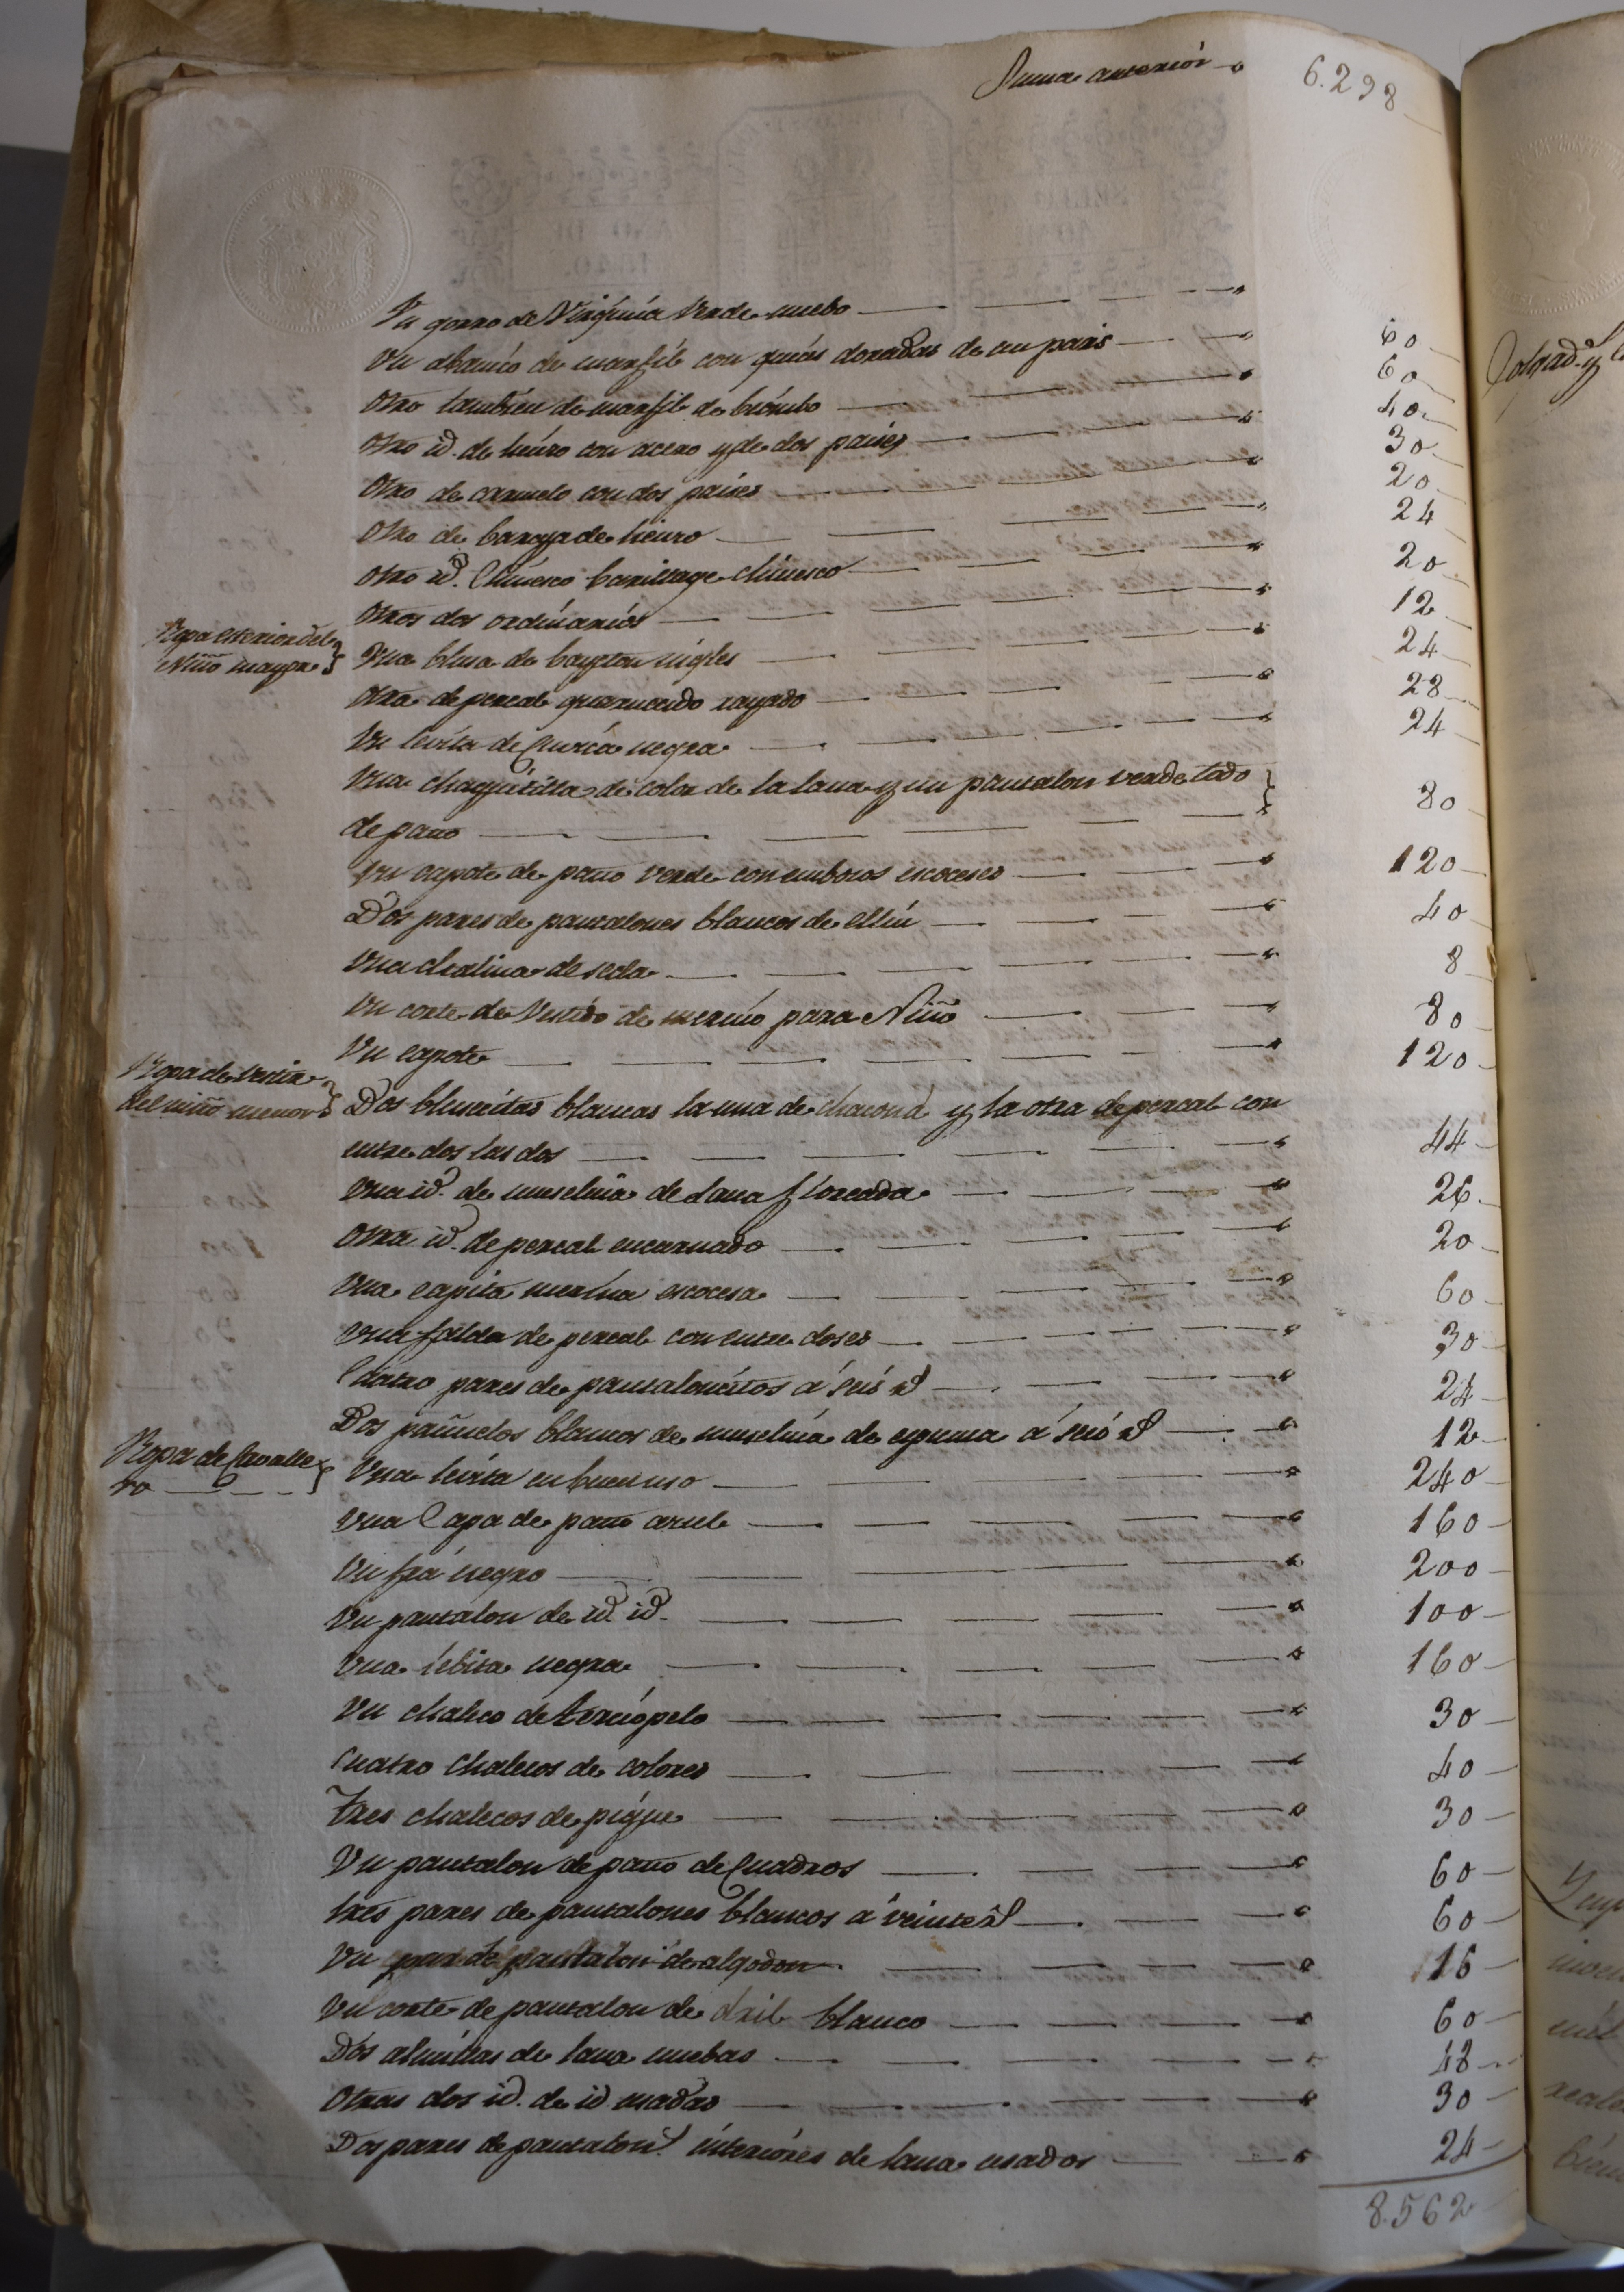 Suma anterior 6.298
Un gorro de Virginia Verde nuebo 60
Un abanico de marfil con guias doradas de un pais 60
Otro tambien de marfil de biombo 40
Otro id. de hueso con acero y de dos paises 30
Otro de caruelo con dos paises 20
Otro de baraja de hueso 24
Otro id. Chinesco barillage chinesco 20
Otros dos ordinarios 12
Ropa esterior del Niño mayor
Una blusa de bayeton yngles 24
Otra de percal guarnecido rayado 28
Un levita de Curica negra 24
Una chaquetilla de color de la lana y un pantalon verde todo
de paño 80
Un capote de paño verde con embozos escoceses 120
Dos pares de pantalones blancos de
Una chalina de seda 8
Un corte de Vestido de merino para Niño 80
Un capote 120
Ropa de vestir
del niño menor
Dos blusecitas blancas la una de chaconá y la otra de percal con
entredos las dos 44
Una id. de muselina de Lana floreada 26
Otra id. de percal encarnado 20
Una capita merina escocesa 60
Una falda de percal con entre doses 30
Cuatro pares de pantaloncitos á seis rs 24
Dos pañuelos blancos de muselina de espuma á seis rs 12
Ropa de Cavalle
ro
Una levita en buen uso 240
Una Capa de paño azul 160
Un frá negro 200
Un pantalon de id. id. 100
Una lebita negra 160
Un chaleco de terciopelo 30
Cuatro chalecos de colores 40
Tres chalecos de pique 30
Un pantalon de paño de Cuadros 60
tres pares de pantalones blancos á veinte rs 60
Un par de pantalon de algodon 16
Un corte de pantalon de dril blanco 60
Dos almillas de lana nuebas 48
Otras dos id. de id usadas 30
Dos pares de pantalons. interiores de lana usados 24
8.562